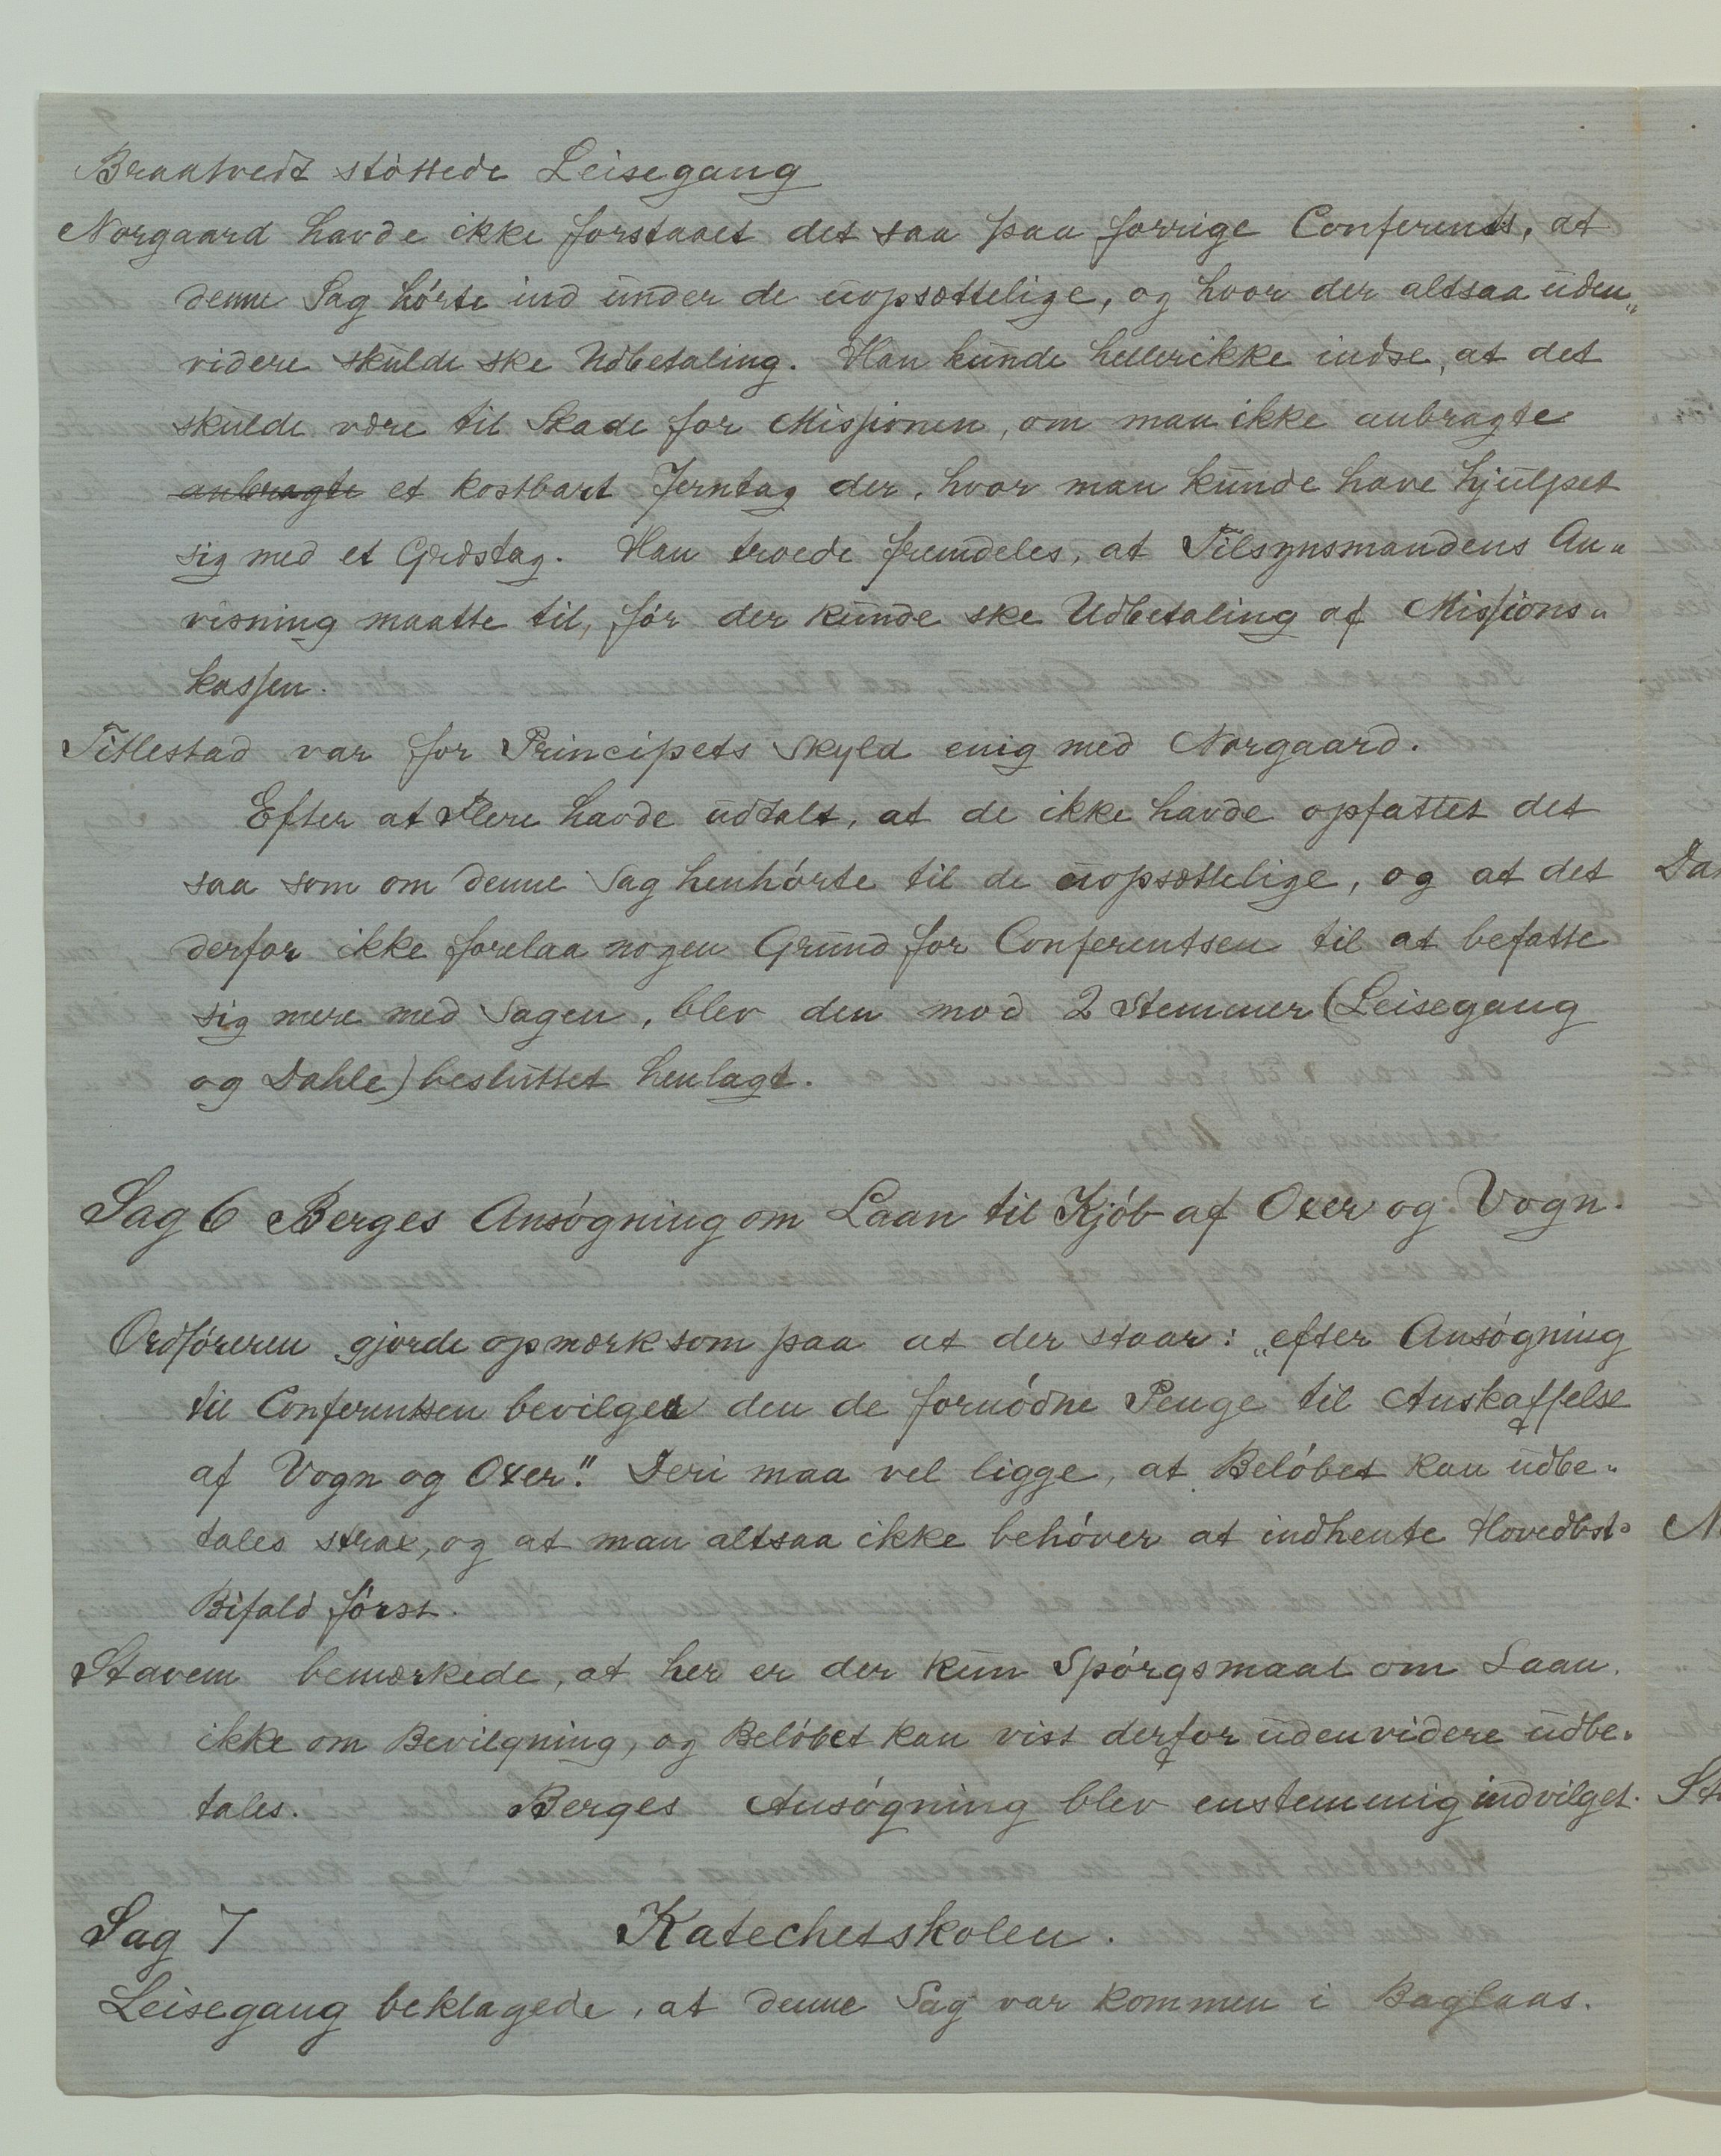 Braatvedt støttede Leisegang
Norgaard havde ikke forstaaet det saa paa forrige Conferents, at
denne Sag hørte ind under de uopsættelige, og hvor der altsaa uden„
videre skulde ske Udbetaling. Han kunde hellerikke indse, at det
skulde være til Skade for Missionen, om man ikke anbragte
anbragte et kostbart Jerntag der, hvor man kunde have hjulpet
sig med et Græstag. Han troede fremdeles, at Tilsynsmandens An„
visning maatte til, før der kunde ske Udbetaling af Missions„
kassen.
Titlestad var for Principets Skyld enig med Norgaard.
Efter at Flere havde udtalt, at de ikke havde opfattet det
saa som om denne Sag henhørte til de uopsættelige, og at det
derfor ikke forelaa nogen Grund for Conferentsen til at befatte
sig mere med Sagen, blev den mod 2 Stemmer (Leisegang
og Dahle) besluttet henlagt.
Sag 6 Berges Ansøgning om Laan til Kjøb af Oxer og Vogn.
Ordføreren gjorde opmærksom paa at der staar: „efter Ansøgning
til Conferentsen bevilger den de fornødne Penge til Anskaffelse
af Vogn og Oxer." Deri maa vel ligge, at Beløbet kan udbe„
tales strax, og at man altsaa ikke behøver at indhente Hovedbst.
Bifald først.
Stavem bemærkede, at her er der kun Spørgsmaal om Laan,
ikke om Bevilgning, og Beløbet kan vist derfor udenvidere udbe„
tales. Berges Ansøgning blev enstemmig indvilget.
Sag 7 Katechetskolen.
Leisegang beklagede, at denne Sag var kommen i Baglaas.